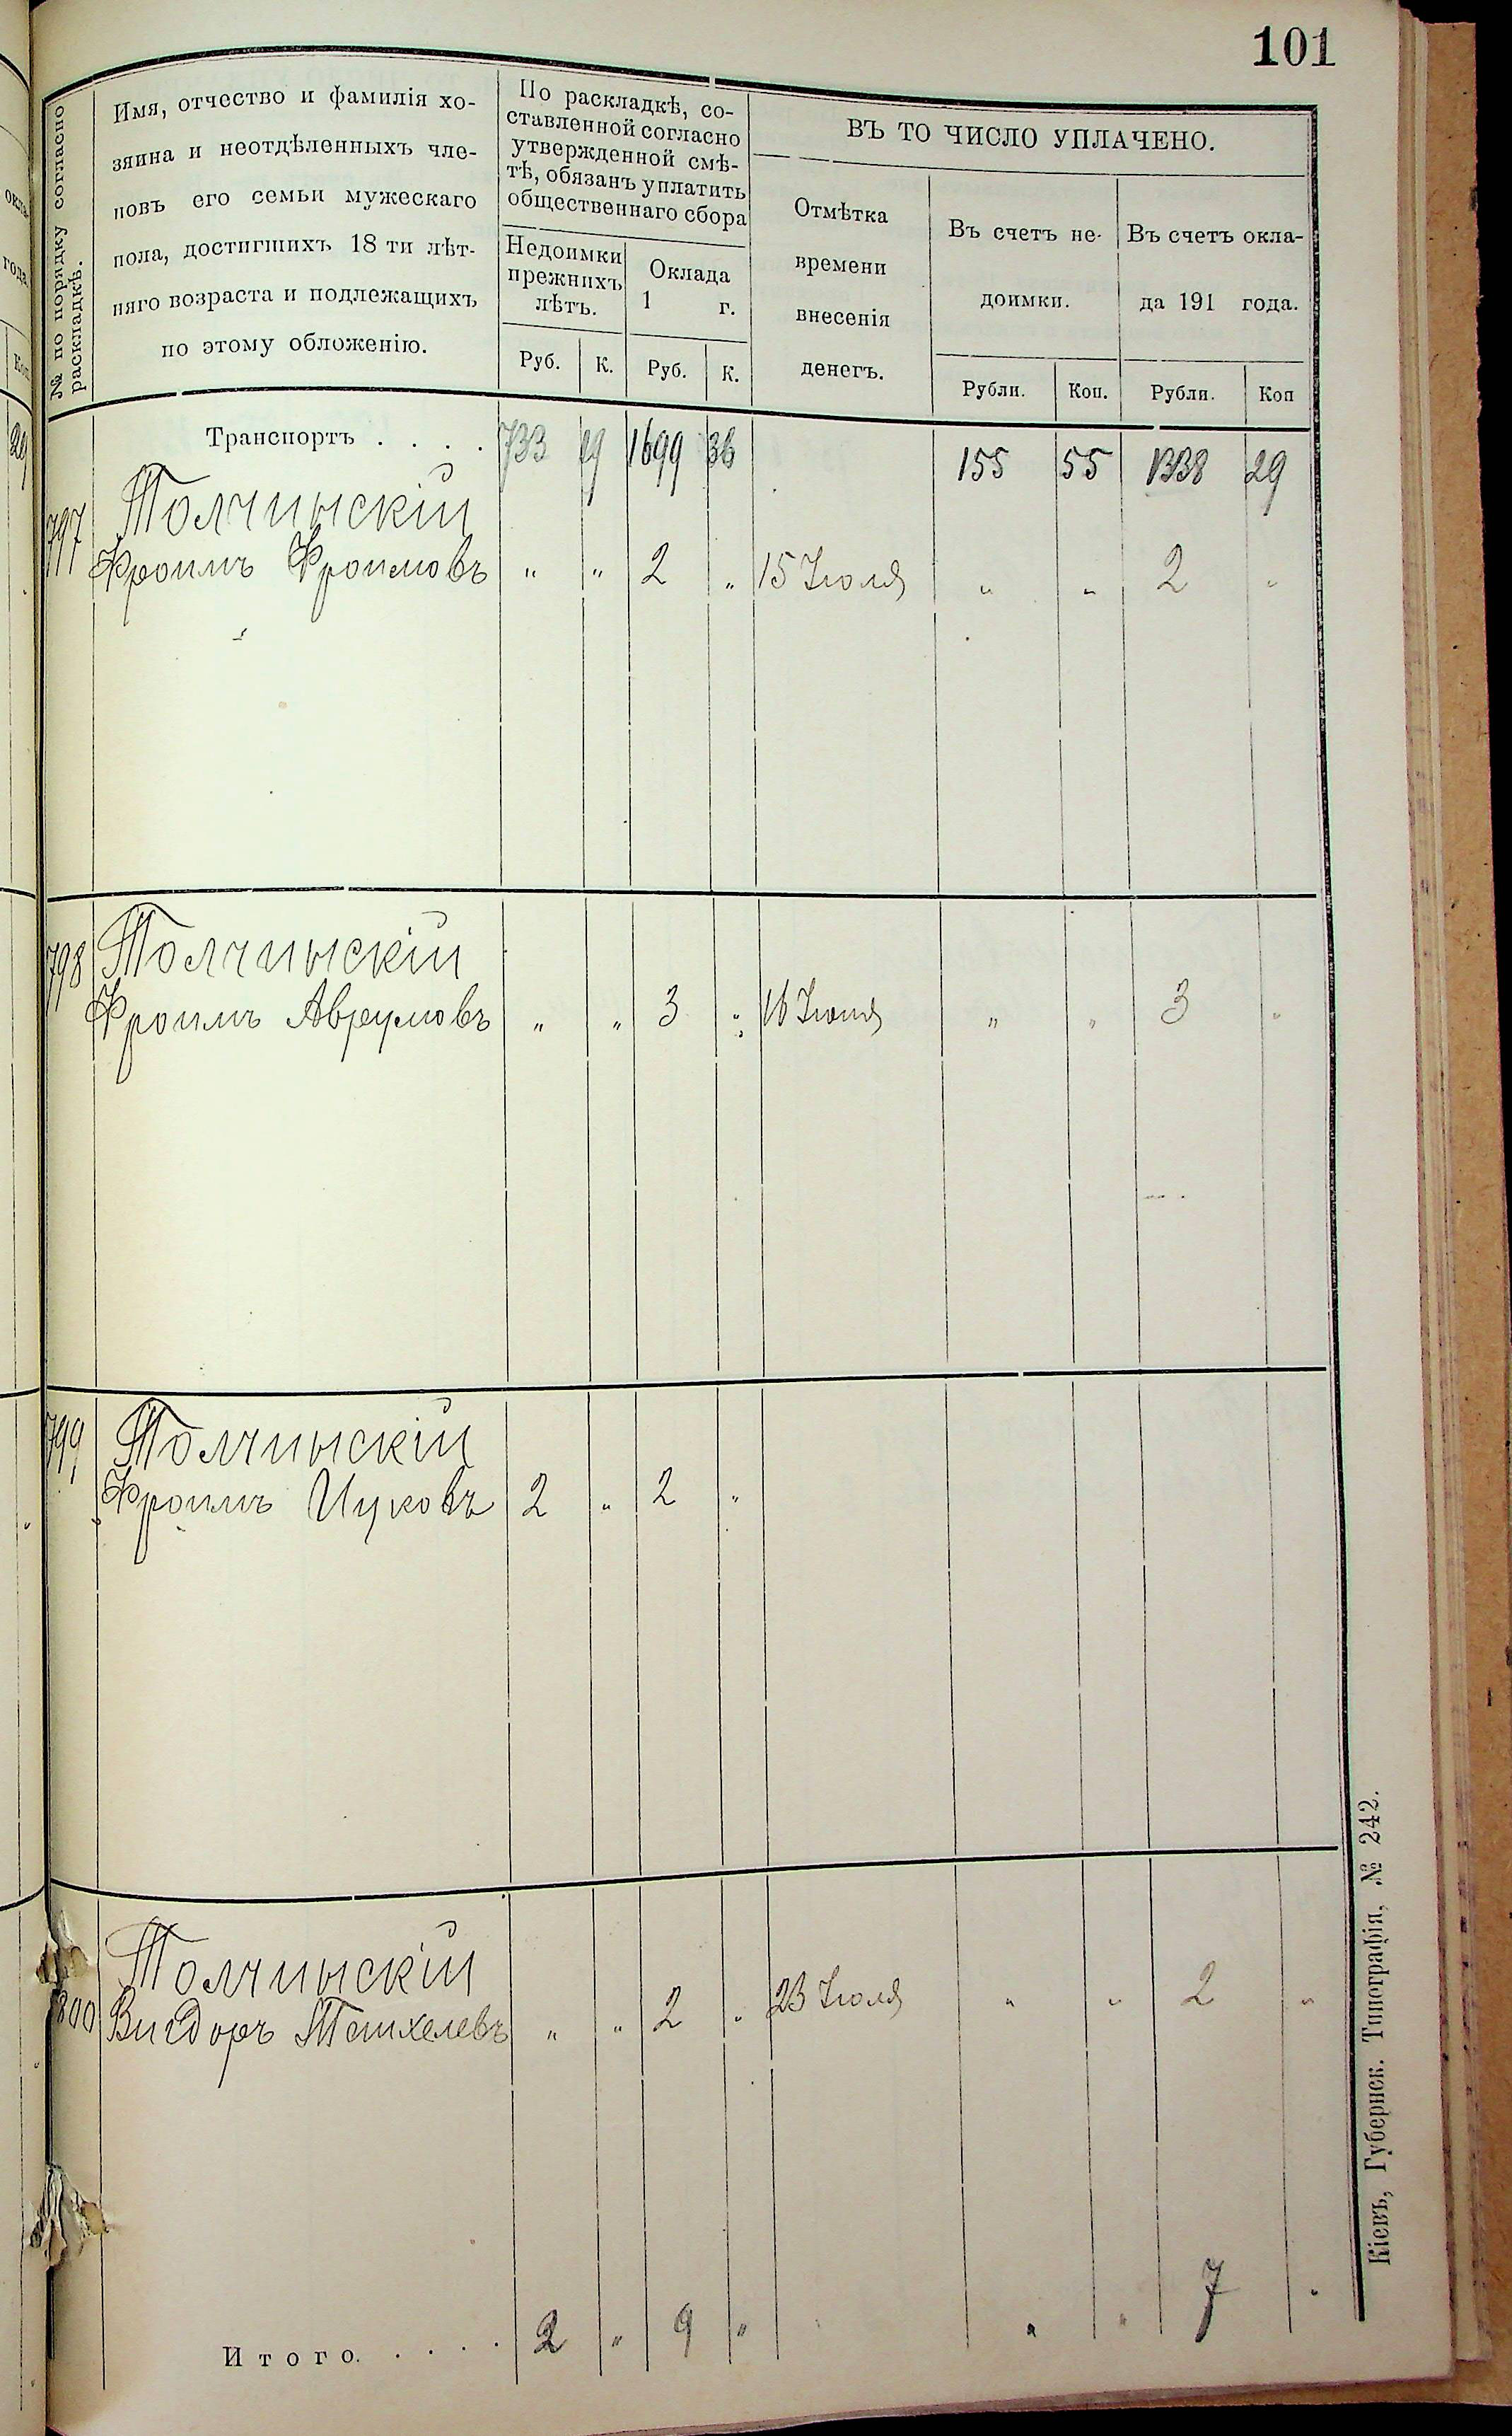 101
№ по порядку согласно
раскладкѣ.
Имя, отчество и фамилія хо-
зяина и неотдѣленныхъ чле-
новъ его семьи мужескаго
пола, достигшихъ 18 ти лѣт-
няго возраста и подлежащихъ
по этому обложенію.
По раскладкѣ, со-
ставленной согласно
утвержденной смѣ-
тѣ, обязанъ уплатить
общественнаго сбора
Недоимки
прежнихъ
лѣтъ.
Оклада
1 г.
Руб. К. Руб. К.
ВЪ ТО ЧИСЛО УПЛАЧЕНО.
Отмѣтка
времени
внесенія
денегъ.
Въ счетъ не-
доимки.
Въ счетъ окла-
да 191 года.
Рубли. Коп. Рубли. Коп
Транспортъ . . . . 733 29 1699 36 155 55 1338 29
797 Толчинскій
Фроимъ Фроимовъ " " 2 " 15 Іюля " " 2 "
798 Толчинскій
Фроимъ Аврумовъ " " 3 " 16 Іюня " " 3 "
799 Толчинскій
Фроимъ Ицковъ 2 " 2 "
800 Толчинскій
Вигдоръ Танхелевъ " " 2 " 23 Іюля " " 2 "
Итого. . . . . 2 " 9 " " " 7 "
Кіевъ, Губернск. Типографія, № 242.